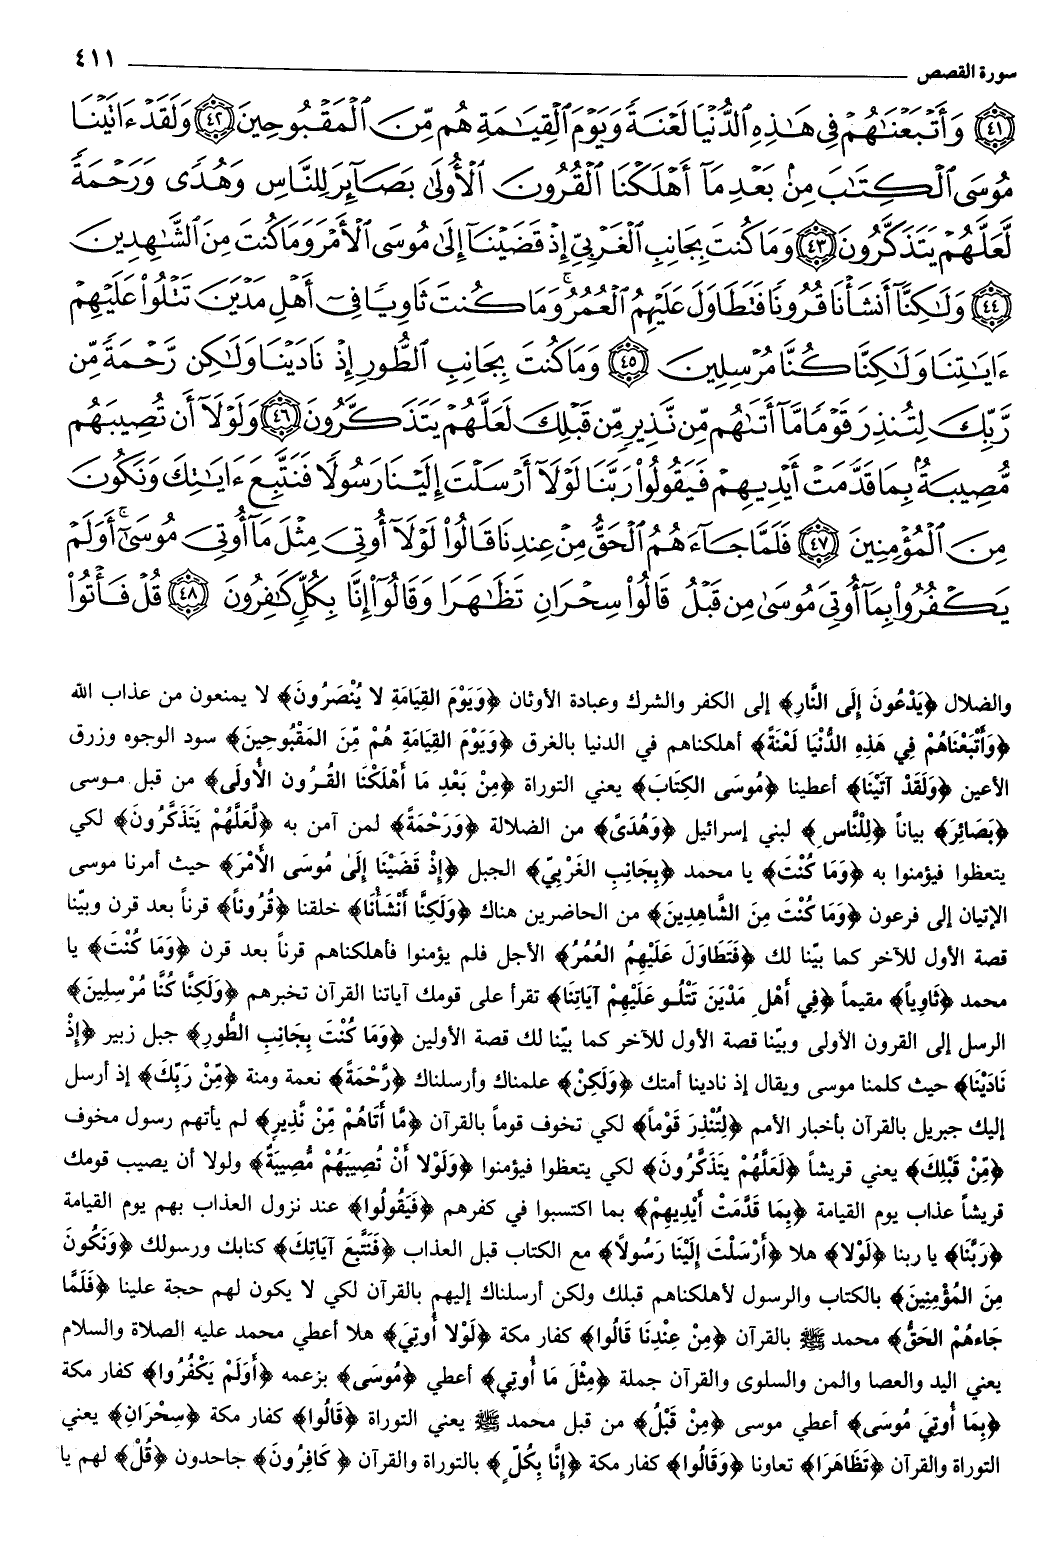 سورة القصص ٤١١
﴿٤١﴾ وَأَتْبَعْنَٰهُمْ فِى هَٰذِهِ ٱلدُّنْيَا لَعْنَةً وَيَوْمَ ٱلْقِيَٰمَةِ هُم مِّنَ ٱلْمَقْبُوحِينَ ﴿٤٢﴾ وَلَقَدْ ءَاتَيْنَا
مُوسَى ٱلْكِتَٰبَ مِنۢ بَعْدِ مَآ أَهْلَكْنَا ٱلْقُرُونَ ٱلْأُولَىٰ بَصَآئِرَ لِلنَّاسِ وَهُدًى وَرَحْمَةً
لَّعَلَّهُمْ يَتَذَكَّرُونَ ﴿٤٣﴾ وَمَا كُنتَ بِجَانِبِ ٱلْغَرْبِىِّ إِذْ قَضَيْنَآ إِلَىٰ مُوسَى ٱلْأَمْرَ وَمَا كُنتَ مِنَ ٱلشَّٰهِدِينَ
﴿٤٤﴾ وَلَٰكِنَّآ أَنشَأْنَا قُرُونًا فَتَطَاوَلَ عَلَيْهِمُ ٱلْعُمُرُ ۚ وَمَا كُنتَ ثَاوِيًا فِىٓ أَهْلِ مَدْيَنَ تَتْلُوا۟ عَلَيْهِمْ
ءَايَٰتِنَا وَلَٰكِنَّا كُنَّا مُرْسِلِينَ ﴿٤٥﴾ وَمَا كُنتَ بِجَانِبِ ٱلطُّورِ إِذْ نَادَيْنَا وَلَٰكِن رَّحْمَةً مِّن
رَّبِّكَ لِتُنذِرَ قَوْمًا مَّآ أَتَىٰهُم مِّن نَّذِيرٍ مِّن قَبْلِكَ لَعَلَّهُمْ يَتَذَكَّرُونَ ﴿٤٦﴾ وَلَوْلَآ أَن تُصِيبَهُم
مُّصِيبَةٌۢ بِمَا قَدَّمَتْ أَيْدِيهِمْ فَيَقُولُوا۟ رَبَّنَا لَوْلَآ أَرْسَلْتَ إِلَيْنَا رَسُولًا فَنَتَّبِعَ ءَايَٰتِكَ وَنَكُونَ
مِنَ ٱلْمُؤْمِنِينَ ﴿٤٧﴾ فَلَمَّا جَآءَهُمُ ٱلْحَقُّ مِنْ عِندِنَا قَالُوا۟ لَوْلَآ أُوتِىَ مِثْلَ مَآ أُوتِىَ مُوسَىٰٓ ۚ أَوَلَمْ
يَكْفُرُوا۟ بِمَآ أُوتِىَ مُوسَىٰ مِن قَبْلُ قَالُوا۟ سِحْرَانِ تَظَٰهَرَا وَقَالُوٓا۟ إِنَّا بِكُلٍّ كَٰفِرُونَ ﴿٤٨﴾ قُلْ فَأْتُوا۟
والضلال ﴿يَدْعُونَ إِلَى النَّارِ﴾ إلى الكفر والشرك وعبادة الأوثان ﴿وَيَوْمَ القِيَامَةِ لا يُنْصَرُونَ﴾ لا يمنعون من عذاب الله
﴿وَأَتْبَعْنَاهُمْ فِي هَذِهِ الدُّنْيَا لَعْنَةً﴾ أهلكناهم في الدنيا بالغرق ﴿وَيَوْمَ القِيَامَةِ هُمْ مِّنَ المَقْبُوحِينَ﴾ سود الوجوه وزرق
الأعين ﴿وَلَقَدْ آتَيْنَا﴾ أعطينا ﴿مُوسَى الكِتَابَ﴾ يعني التوراة ﴿مِنْ بَعْدِ مَا أَهْلَكْنَا القُرُون الأُولَى﴾ من قبل موسى
﴿بَصَائِرَ﴾ بياناً ﴿لِلْنَّاسِ﴾ لبني إسرائيل ﴿وَهُدَىً﴾ من الضلالة ﴿وَرَحْمَةً﴾ لمن آمن به ﴿لَّعَلَّهُمْ يَتَذَكَّرُونَ﴾ لكي
يتعظوا فيؤمنوا به ﴿وَمَا كُنْتَ﴾ يا محمد ﴿بِجَانِبِ الغَرْبِيِّ﴾ الجبل ﴿إِذْ قَضَيْنَا إِلَىٰ مُوسَى الأَمْرَ﴾ حيث أمرنا موسى
الإتيان إلى فرعون ﴿وَمَا كُنْتَ مِنَ الشَّاهِدِينَ﴾ من الحاضرين هناك ﴿وَلَكِنَّا أَنْشَأْنَا﴾ خلقنا ﴿قُرُوناً﴾ قرناً بعد قرن وبيّنا
قصة الأول للآخر كما بيّنا لك ﴿فَتَطَاوَلَ عَلَيْهِمُ العُمُرُ﴾ الأجل فلم يؤمنوا فأهلكناهم قرناً بعد قرن ﴿وَمَا كُنْتَ﴾ يا
محمد ﴿ثَاوِياً﴾ مقيماً ﴿فِي أَهْلِ مَدْيَنَ تَتْلُو عَلَيْهِمْ آيَاتِنَا﴾ تقرأ على قومك آياتنا القرآن تخبرهم ﴿وَلَكِنَّا كُنَّا مُرْسِلِينَ﴾
الرسل إلى القرون الأولى وبيّنا قصة الأول للآخر كما بيّنا لك قصة الأولين ﴿وَمَا كُنْتَ بِجَانِبِ الطُّورِ﴾ جبل زبير ﴿إِذْ
نَادَيْنَا﴾ حيث كلمنا موسى ويقال إذ نادينا أمتك ﴿وَلَكِنْ﴾ علمناك وأرسلناك ﴿رَّحْمَةً﴾ نعمة ومنة ﴿مِّنْ رَبِّكَ﴾ إذ أرسل
إليك جبريل بالقرآن بأخبار الأمم ﴿لِتُنْذِرَ قَوْماً﴾ لكي تخوف قوماً بالقرآن ﴿مَّا أَتَاهُمْ مِّنْ نَّذِيرٍ﴾ لم يأتهم رسول مخوف
﴿مِّنْ قَبْلِكَ﴾ يعني قريشاً ﴿لَعَلَّهُمْ يَتَذَكَّرُونَ﴾ لكي يتعظوا فيؤمنوا ﴿وَلَوْلا أَنْ تُصِيبَهُمْ مُّصِيبَةٌ﴾ ولولا أن يصيب قومك
قريشاً عذاب يوم القيامة ﴿بِمَا قَدَّمَتْ أَيْدِيهِمْ﴾ بما اكتسبوا في كفرهم ﴿فَيَقُولُوا﴾ عند نزول العذاب بهم يوم القيامة
﴿رَبَّنَا﴾ يا ربنا ﴿لَوْلا﴾ هلا ﴿أَرْسَلْتَ إِلَيْنَا رَسُولاً﴾ مع الكتاب قبل العذاب ﴿فَنَتَّبِعَ آيَاتِكَ﴾ كتابك ورسولك ﴿وَنَكُونَ
مِنَ المُؤْمِنِينَ﴾ بالكتاب والرسول لأهلكناهم قبلك ولكن أرسلناك إليهم بالقرآن لكي لا يكون لهم حجة علينا ﴿فَلَمَّا
جَاءهُمْ الحَقُّ﴾ محمد ﷺ بالقرآن ﴿مِنْ عِنْدِنَا قَالُوا﴾ كفار مكة ﴿لَوْلا أُوتِيَ﴾ هلا أعطي محمد عليه الصلاة والسلام
يعني اليد والعصا والمن والسلوى والقرآن جملة ﴿مِثْلَ مَا أُوتِي﴾ أعطي ﴿مُوسَى﴾ بزعمه ﴿أَوَلَمْ يَكْفُرُوا﴾ كفار مكة
﴿بِمَا أُوتِيَ مُوسَى﴾ أعطي موسى ﴿مِنْ قَبْلُ﴾ من قبل محمد ﷺ يعني التوراة ﴿قَالُوا﴾ كفار مكة ﴿سِحْرَانِ﴾ يعني
التوراة والقرآن ﴿تَظَاهَرَا﴾ تعاونا ﴿وَقَالُوا﴾ كفار مكة ﴿إِنَّا بِكُلٍّ﴾ بالتوراة والقرآن ﴿كَافِرُونَ﴾ جاحدون ﴿قُلْ﴾ لهم يا